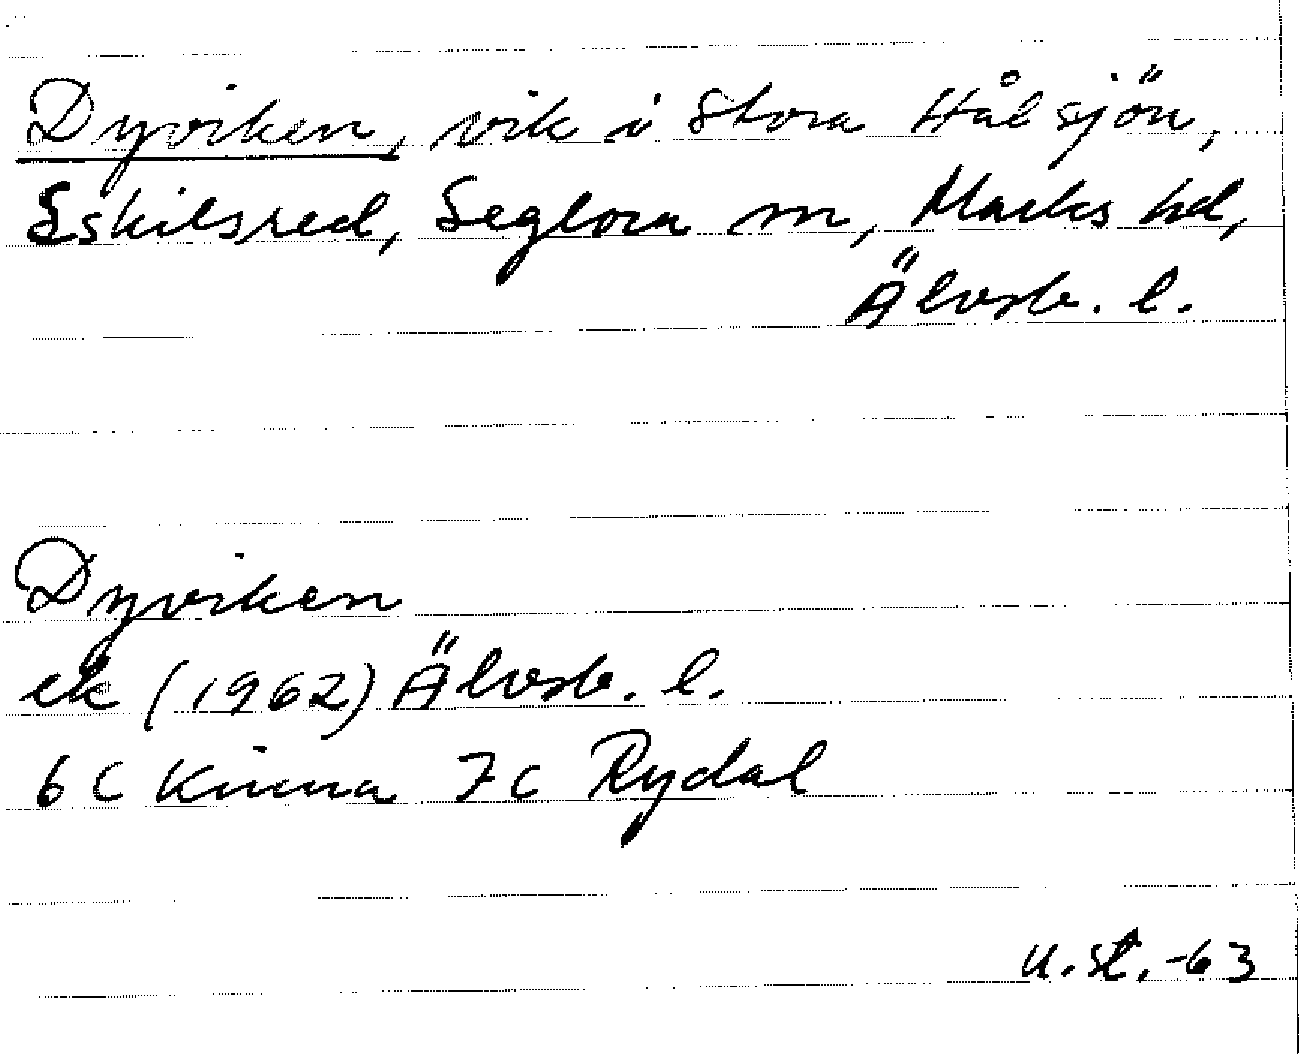 Dyviken, vik i Stora Hålsjön,
Eskilsred, Seglora sn, Marks hd,
Älvsb. l.
Dyviken
ek (1962) Älvsb. l.
6 C Kinna 7 c Rydal
U. st. -63